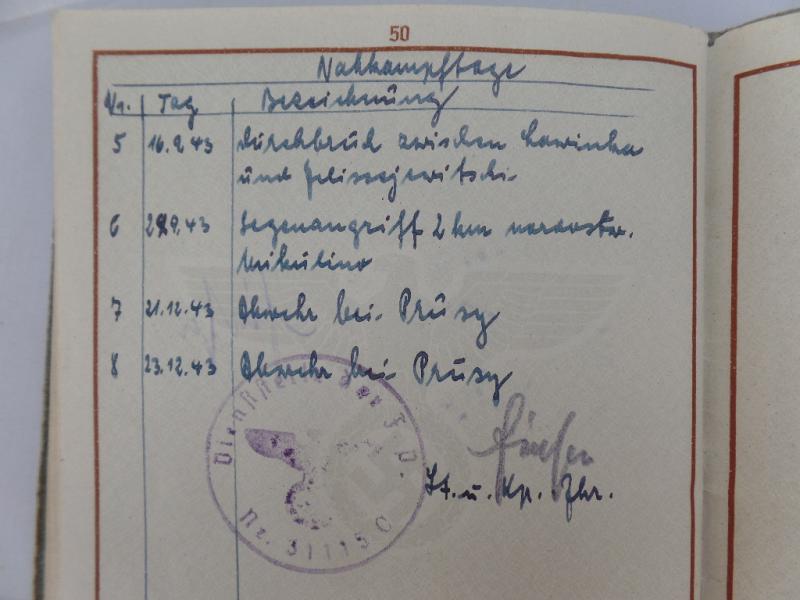 50
Nahkampftage
Nr. Tag Bezeichnung
5 16.9.43 Durchbruch zwischen Lawinka
und Jelissejewitschi
6 9.43 Gegenangriff 2 km nordostw.
Mikulino
7 21.12.43 Abwehr bei Prusy
8 23.12.43 Abwehr bei Prusy
Dienststelle der F.P.
Nr. 31115 C
Lt. u. Kp. Fhr.